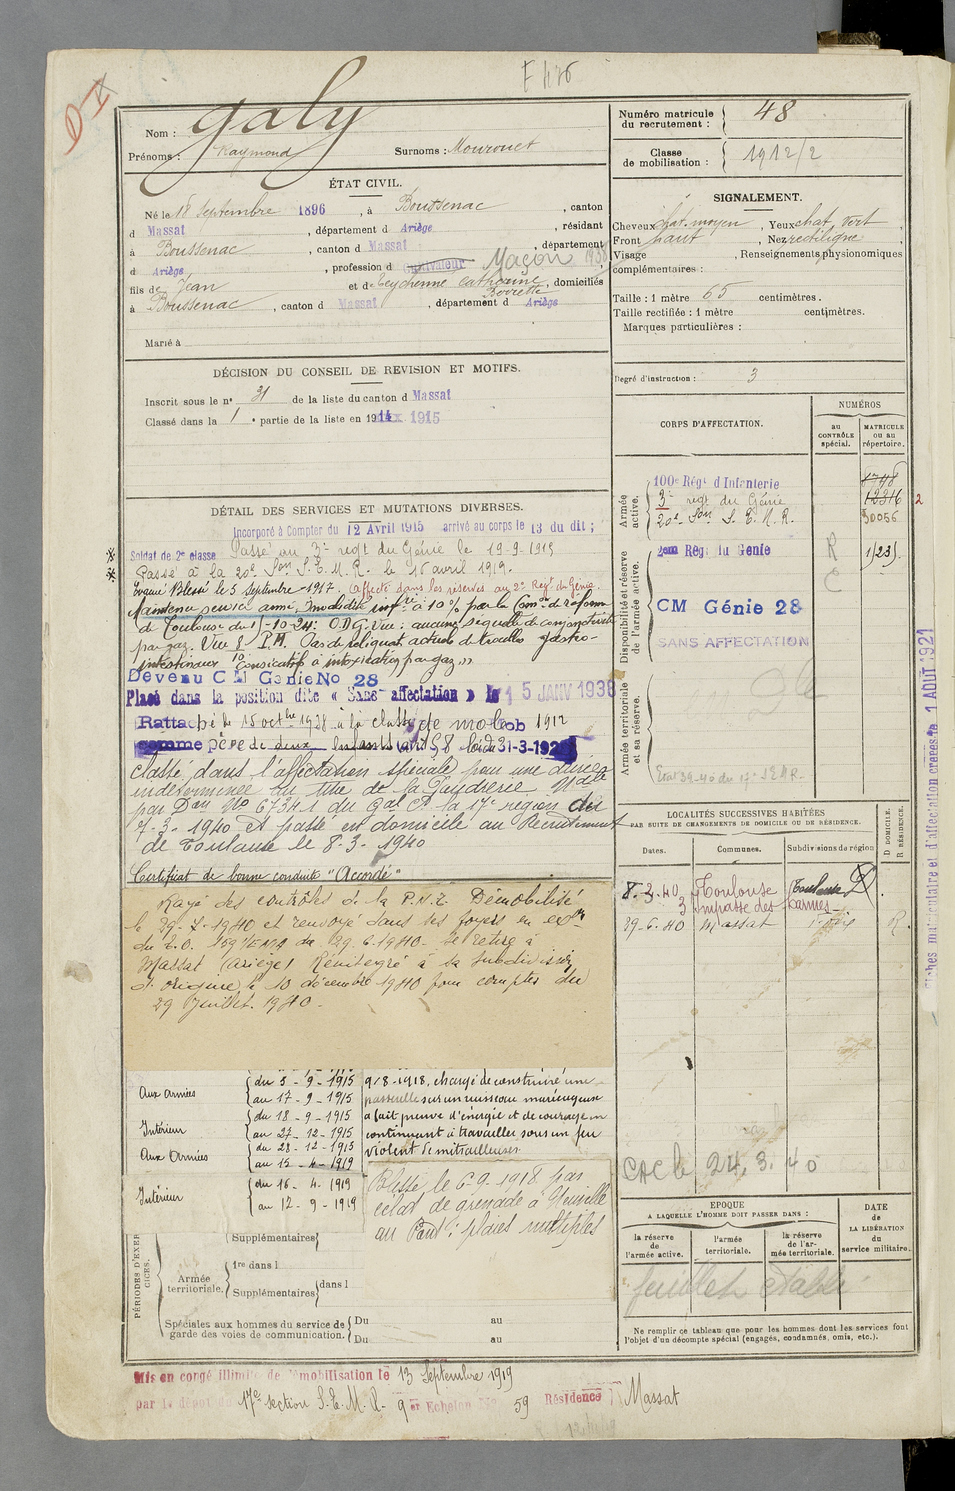 F 476
Nom : Galy
Prénoms : Raymond Surnoms : Mourouet
Numéro matricule du recrutement : 48
Classe de mobilisation : 1912/2
ÉTAT CIVIL.
Né le 18 Septembre 1896 , à Boussenac , canton
d Massat , département d Ariège , résidant
à Boussenac , canton d Massat , département
d Ariège , profession d cultivateur Maçon 1938
fils de Jean et de Teychenne Catherine , domiciliés
à Boussenac , canton d Massat , département d Ariège
Marié à
SIGNALEMENT.
Cheveux chat. moyen , Yeux chat. vert ,
Front haut , Nez rectiligne ,
Visage , Renseignements physionomiques
complémentaires :
Taille : 1 mètre 65 centimètres.
Taille rectifiée : 1 mètre centimètres.
Marques particulières :
Degré d'instruction : 3
DÉCISION DU CONSEIL DE REVISION ET MOTIFS.
Inscrit sous le n° 31 de la liste du canton d Massat
Classé dans la 1 e partie de la liste en 1914 1915
CORPS D'AFFECTATION.
NUMÉROS
au CONTRÔLE spécial.
MATRICULE ou au répertoire.
Armée active.
100e Régt d'Infanterie
3e regt du Génie 12316
20e Son S. E. M. R. 30056
Disponibilité et réserve de l'armée active.
2ème Rég. du Génie R 1/23
C
CM Génie 28
SANS AFFECTATION
Armée territoriale et sa réserve.
DÉTAIL DES SERVICES ET MUTATIONS DIVERSES.
Incorporé à Compter du 12 Avril 1915 arrivé au corps le 13 du dit ;
Soldat de 2e classe Passé au 3e regt du Génie le 19-9-1915
Passé à la 20e Son S. E. M. R. le 16 avril 1919.
Evacué Blessé le 5 Septembre 1917. Affecté dans les réserves au 2e Régt du Génie
Maintenu service armé, invalidité infre à 10 % par la Com. de réforme
de Toulouse du 1-10-24 : O.D.G. Vu : aucune séquelle de conjonctivite
par gaz. Vue 8 P.H. Pas de reliquat actuel de troubles gastro-
intestinaux consécutifs à intoxication par gaz »
Devenu C M Génie No 28
Placé dans la position dite « Sans-affectation » le 15 JANV 1938
Rattaché le 15 octbre 1938 à la classe de mob 1912
comme père de deux enfants (art 58 loi du 31-3-1928
classé dans l'affectation spéciale pour une durée
indéterminée au titre de la Poudrerie Nle
par Don No 67341 du Gal Ct la 17e région du
7-3-1940 et passé en domicile au Recrutement
de Toulouse le 8-3-1940
Certificat de bonne conduite "Accordé"
Rayé des contrôles de la P.N.T. Démobilisé
le 29-7-1940 et renvoyé dans ses foyers en exon
du T.O. 159 1/EMA du 29-6-1940. Se retire à
Massat (Ariège) Réintégré à sa Subdivision
d'origine le 10 décembre 1940 pour compter du
29 Juillet 1940.
LOCALITÉS SUCCESSIVES HABITÉES
PAR SUITE DE CHANGEMENTS DE DOMICILE OU DE RÉSIDENCE.
Dates. Communes. Subdivisions de région D DOMICILE. R RÉSIDENCE.
8.3.40 Toulouse Toulouse D
3 Impasse des Carmes
29-6-40 Massat Foix R.
CAC le 24.3.40
Aux Armées du 3-9-1915
au 17-9-1915
Intérieur du 18-9-1915
au 27-12-1915
Aux Armées du 28-12-1915
au 15-4-1919
Intérieur du 16-4-1919
au 12-9-1919
9/8-1918, chargé de construire une
passerelle sur un ruisseau marécageux
a fait preuve d'énergie et de courage en
continuant à travailler sous un feu
violent de mitrailleuses
Blessé le 6-9-1918 par
éclat de grenade à
au Pont : plaies multiples
PÉRIODES D'EXERCICES.
Supplémentaires
Armée territoriale.
1re dans l
Supplémentaires dans l
Spéciales aux hommes du service de garde des voies de communication.
Du au
Du au
EPOQUE
A LAQUELLE L'HOMME DOIT PASSER DANS :
la réserve de l'armée active.
l'armée territoriale.
la réserve de l'armée territoriale.
DATE de LA LIBÉRATION du service militaire.
feuillet établi
Ne remplir ce tableau que pour les hommes dont les services font
l'objet d'un décompte spécial (engagés, condamnés, omis, etc.).
Mis en congé illimité de démobilisation le 13 Septembre 1919
par le dépôt du 17e section S. E. M. R. 9 er Echelon No 59 Résidence Massat
Fiches matriculaire et d'affectation créées le 1 AOUT 1921